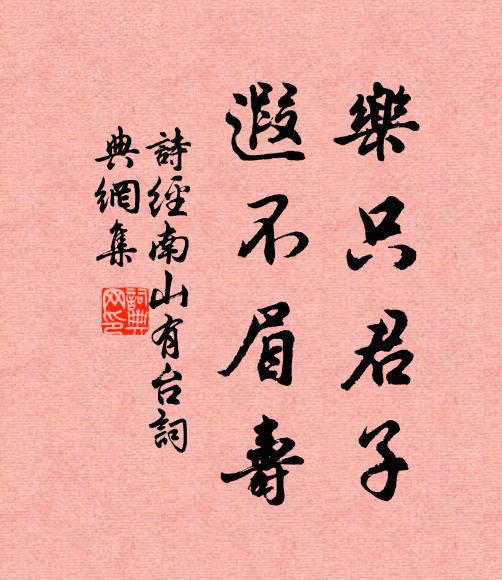 樂只君子
遐不眉壽
詩經南山有台詞
典網集
詞典
网印